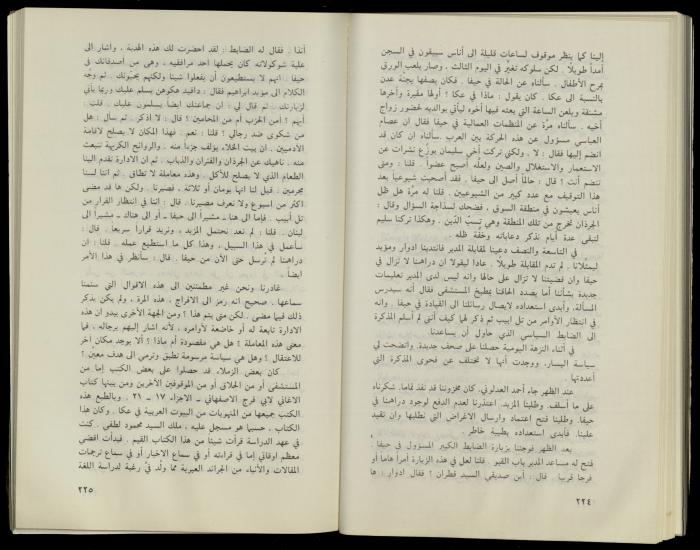 إلينا كما ينظر موقوف لساعات قليلة الى أناس سيبقون في السجن
أمداً طويلاً . لكن سلوكه تغير في اليوم الثالث ، وصار يلعب الورق
بمرح الأطفال . سألناه عن الحالة في حيفا . فكان يصفها بجنة عدن
بالنسبة الى عكا . كان يقول : ماذا في عكا ؟ أولها مقبرة وآخرها
مشنقة ويلعن الساعة التي بعثه فيها أخوه ليأتي بوالديه لحضور زواج
أخيه . سألناه مرة عن المنظمات العمالية في حيفا فقال ان عصام
العباسي مسؤول عن هذه الحركة بين العرب . سألناه ان كان قد
انضم إليها فقال : لا . ولكني تركت أخي سليمان يوزع نشرات عن
الاستعمار والاستغلال والصين ولعله أصبح عضواً . قلنا : ومتى
تنضم أنت ? قال : حالما أصل الى حيفا . فقد أصبحت شيوعياً بعد
هذا التوقيف مع عدد كبير من الشيوعيين . قلنا له مرة هل ظل
أناس يعيشون في منطقة السوق ، فضحك لسذاجة السؤال وقال :
الجرذان تخرج من تلك المنطقة وهي تسب الدين . وهكذا تركنا سليم
لتبقى عدة أيام نذكر دعاباته وخفة ظله .
في التاسعة والنصف دعينا لمقابلة المدير فانتدبنا ادوار ومؤيد
ليمثلانا . لم تدم المقابلة طويلاً . عادا ليقولا ان دراهمنا لا تزال في
حيفا وان قضيتنا لا تزال على حالها وانه ليس لدى المدير تعليمات
جديدة بشأننا أما بصدد الحاقنا بمطبخ المستشفى فقال أنه سيدرس
المسألة . وأبدى استعداده لايصال رسائلنا الى القيادة في حيفا . وانه
في انتظار الأوامر من تل ابيب ثم ذكر لهما كيف أنني لم أسلم المذكرة
الى الضابط السياسي الذي حاول أن يساعدنا .
في أثناء النزهة اليومية حصلنا على صحف جديدة . واتضحت لي
سياسة اليسار ، ووجدت أنها لا تختلف عن فحوى المذكرة التي
أعددتها .
عند الظهر جاء أحمد العدلوني . كان مخزوننا قد نفذ تماما . شكرناه
على ما أسلف . وطلبنا المزيد . اعتذرنا لعدم الدفع لوجود دراهمنا في
حيفا . وطلبنا فتح اعتماد وارسال الاغراض التي نطلبها وان تقيد
علينا . فأبدى استعداده بطيبة خاطر .
بعد الظهر فوجئنا بزيارة الضابط الكبير المسؤول في حيفا .
فتح له مساعد المدير باب القبو . قلنا لعل في هذه الزيارة أمراً هاما أو
فرجا قريبا . قال : أين صديقي السيد قطران ؟ فقال ادوار : ها
٢٢٤
أنذا . فقال له الضابط : لقد احضرت لك هذه الهدية ، واشار الى
علبة شوكولاته كان يحملها احد مرافقيه ، وهي من أصدقائك في
حيفا . انهم لا يستطيعون أن يفعلوا شيئا ولكنهم يحبونك . ثم وجه
الكلام الى مؤيد ابراهيم فقال : دافيد هكوهن يسلم عليك وربما يأتي
لزيارتك . ثم قال لي : ان جماعتك ايضا يسلمون عليك . قلت :
أيهم ؟ أمن الحزب أم من المحامين ؟ قال : لا اذكر . ثم سأل : هل
من شكوى ضد رجالي ؟ قلنا : نعم . فهذا المكان لا يصلح لاقامة
الآدميين . ان بيت الخلاء يؤلف جزءاً منه . والروائح الكريهة تنبعث
منه . ناهيك عن الجرذان والفئران والذباب . ثم ان الادارة تقدم الينا
الطعام الذي لا يصلح للأكل . وهذه معاملة لا تطاق . ثم اننا لسنا
مجرمين . قيل لنا أنها يومان أو ثلاثة . فصبرنا . ولكن ها قد مضى
اكثر من اسبوع ولا نعرف مصيرنا . قال : اننا في انتظار القرار من
تل أبيب . فإما الى هنا ـ مشيراً الى حيفا ـ أو الى هناك ـ مشيراً الى
لبنان . قلنا : لم نعد نحتمل المزيد . ونريد قراراً سريعا . قال :
سأعمل في هذا السبيل ، وهذا كل ما أستطيع عمله . قلنا : ان
دراهمنا لم ترسل حتى الآن من حيفا . قال : سأنظر في هذا الأمر
ايضاً .
غادرنا ونحن غير مطمئنين الى هذه الاقوال التي سئمنا
سماعها . صحيح انه رمز الى الافراج ، هذه المرة ، ولم يكن يذكر
ذلك فيما مضى . لكن متى يتم هذا ؟ ومن الجهة الأخرى يبدو ان هذه
الادارة تابعة له أو خاضعة لأوامره ، لأنه اشار إليهم برجاله . فما
معنى هذه المعاملة ؟ هل هي مقصودة أم ماذا ؟ ألا يوجد مكان آخر
للاعتقال ؟ وهل هي سياسة مرسومة تطبق وترمي الى هدف معين ؟
كان بعض الزملاء قد حصلوا على بعض الكتب إما من
المستشفى أو من الحلاق أو من الموقوفين الآخرين ومن بينها كتاب
الاغاني لابي فرج الاصفهاني ـ الاجزاء ١٧ ـ ٢١ . وبالطبع هذه
الكتب جميعها من المنهوبات من البيوت العربية في عكا . وكان هذا
الكتاب ، حسبما هو مسجل عليه ، ملك السيد محمود لطفي . كنت
في عهد الدراسة قرأت شيئا من هذا الكتاب القيم . فبدأت اقضي
معظم اوقاتي إما في قراءته أو في سماع الاخبار أو في سماع ترجمات
المقالات والأنباء من الجرائد العبرية مما ولد في رغبة لدراسة اللغة
٢٢٥